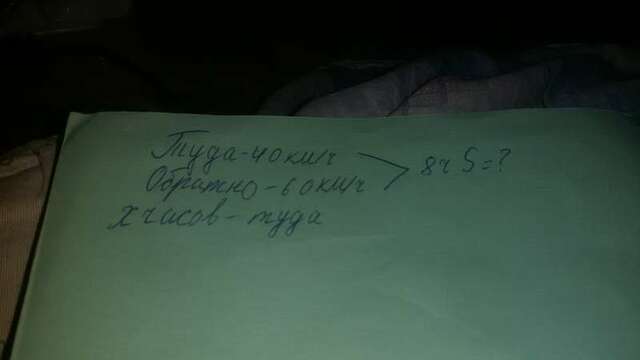 Туда-40км/ч
Обратно-60км/ч 8ч S=?
х часов-туда